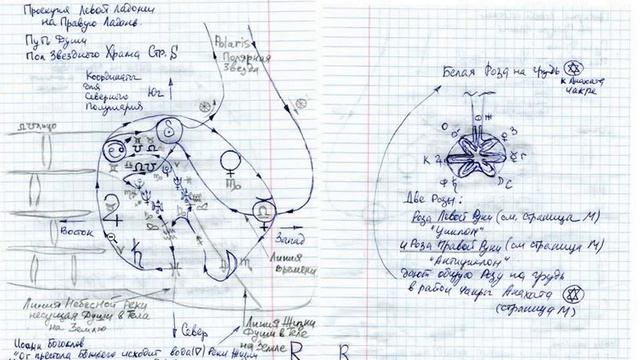 Проекция Левой Ладони
на Правую Ладонь.
Путь Души
Пол Звездного Храма Стр. S
Polaris
Полярная
Звезда
Координаты
для
Северного
Полушария
Юг
Восток
Запад
Линия
времени
Линия Небесной Реки
несущая Души в Тела
на Землю
Север
Линия Жизни
Души в Теле
на Земле
Иоанн Богослов
"От престола Божьего исходит вода Реки Жизни
R
R
Белая Роза на грудь
к Анахата
чакре
Две Розы:
Роза Левой Руки (см. страница М)
"Циклон"
и Роза Правой Руки (см. страница М)
"Антициклон"
дают общую Розу на грудь
в район чакры Анахата
(страница М)